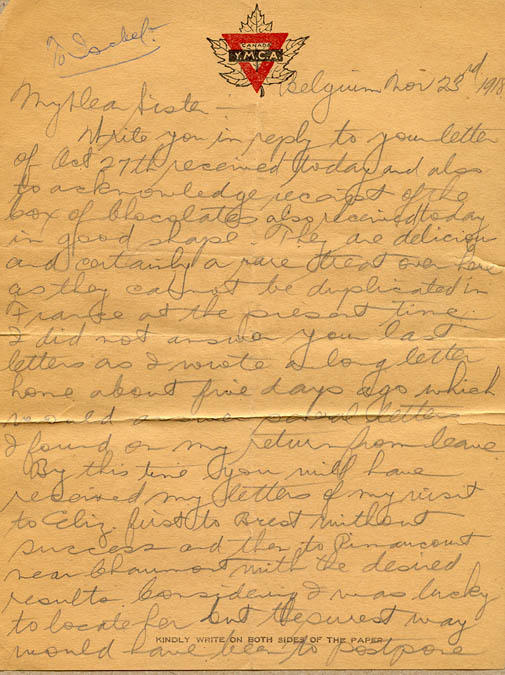 To Isabel.
CANADA
Y.M.C.A.
Belgium Nov 23rd 1918
My Dear Sister –
Write you in reply to your letter
of Oct 27th received today and also
to acknowledge receipt of the
box of Chocolates also received today
in good shape. They are delicious
and certainly a rare treat over here
as they cannot be duplicated in
France at the present time.
I did not answer your last
letters as I wrote a long letter
home about five days ago which
would answer several letters
I found on my return from leave.
By this time you will have
received my letters of my visit
to Eliz. first to Brest without
success and then to
near Chaumont with the desired
results. Considering I was lucky
to locate her but the surest way
KINDLY WRITE ON BOTH SIDES OF THE PAPER
would have been to postpone